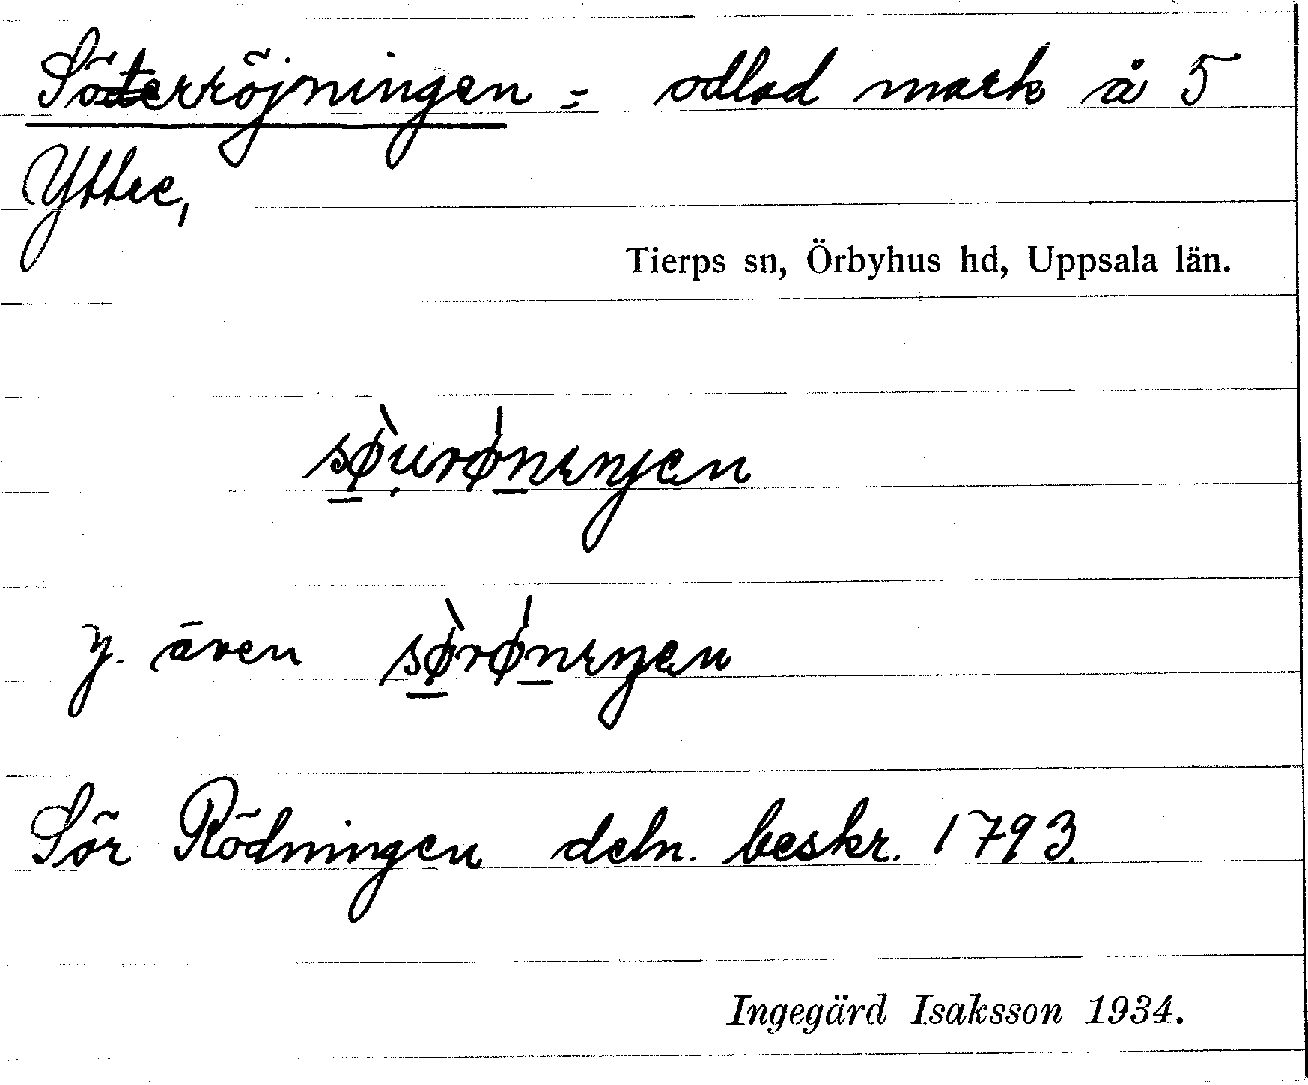 Söderröjningen = odlad mark å 5
Yttre,
Tierps sn, Örbyhus hd, Uppsala län.
sø̀urǿnıŋen
y. även sø̀rǿnıŋen
Sör Rödningen deln. beskr. 1793.
Ingegärd Isaksson 1934.